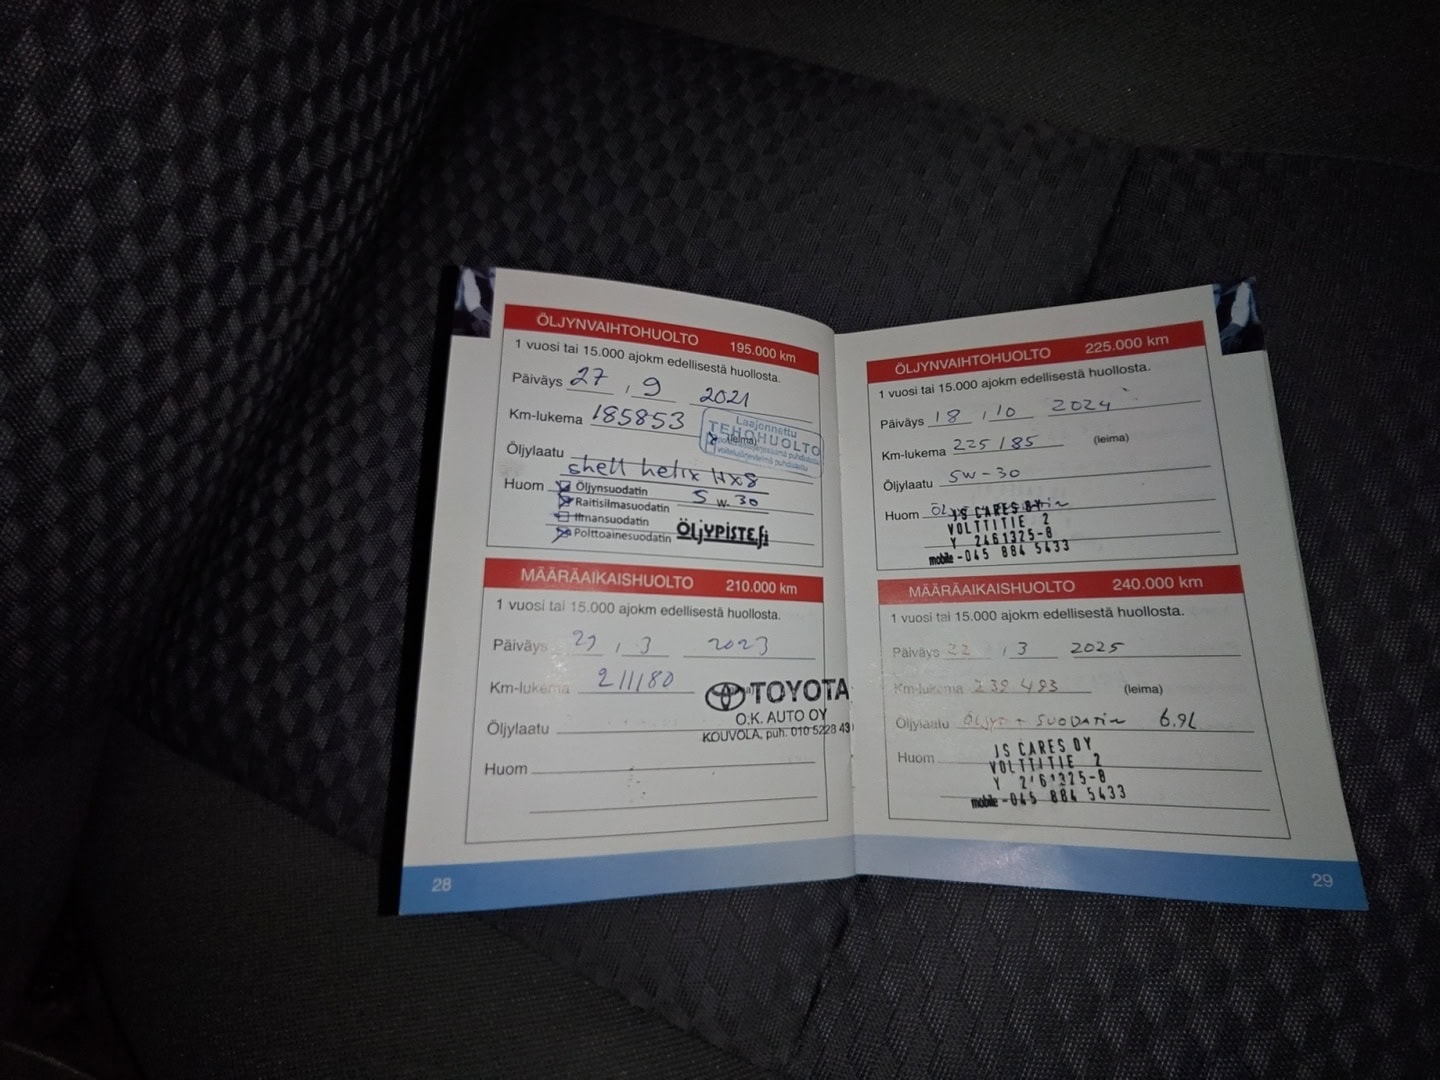 ÖLJYNVAIHTOHUOLTO 195.000 km
1 vuosi tai 15.000 ajokm edellisestä huollosta.
Päiväys 27 , 9 2021
Km-lukema 185853 (leima)
Laajennettu
TEHOHUOLTO
Öljylaatu shell helix HX8
5 w. 30
Huom Öljynsuodatin
Raitisilmasuodatin
Ilmansuodatin
Polttoainesuodatin
ÖLJYPISTE.fi
MÄÄRÄAIKAISHUOLTO 210.000 km
1 vuosi tai 15.000 ajokm edellisestä huollosta.
Päiväys 29 , 3 2023
Km-lukema 211180
TOYOTA
O.K. AUTO OY
KOUVOLA, puh. 010 5228 43
Öljylaatu
Huom
28
ÖLJYNVAIHTOHUOLTO 225.000 km
1 vuosi tai 15.000 ajokm edellisestä huollosta.
Päiväys 18 , 10 2024
Km-lukema 225185 (leima)
Öljylaatu 5W-30
Huom
JS CARES OY
VOLTTITIE 2
Y 2461325-8
mobile -045 884 5433
MÄÄRÄAIKAISHUOLTO 240.000 km
1 vuosi tai 15.000 ajokm edellisestä huollosta.
Päiväys 22 , 3 2025
Km-lukema 239 493 (leima)
Öljylaatu Öljyt + SUODATIN 6.9L
Huom
JS CARES OY
VOLTTITIE 2
Y 2461325-8
mobile -045 884 5433
29